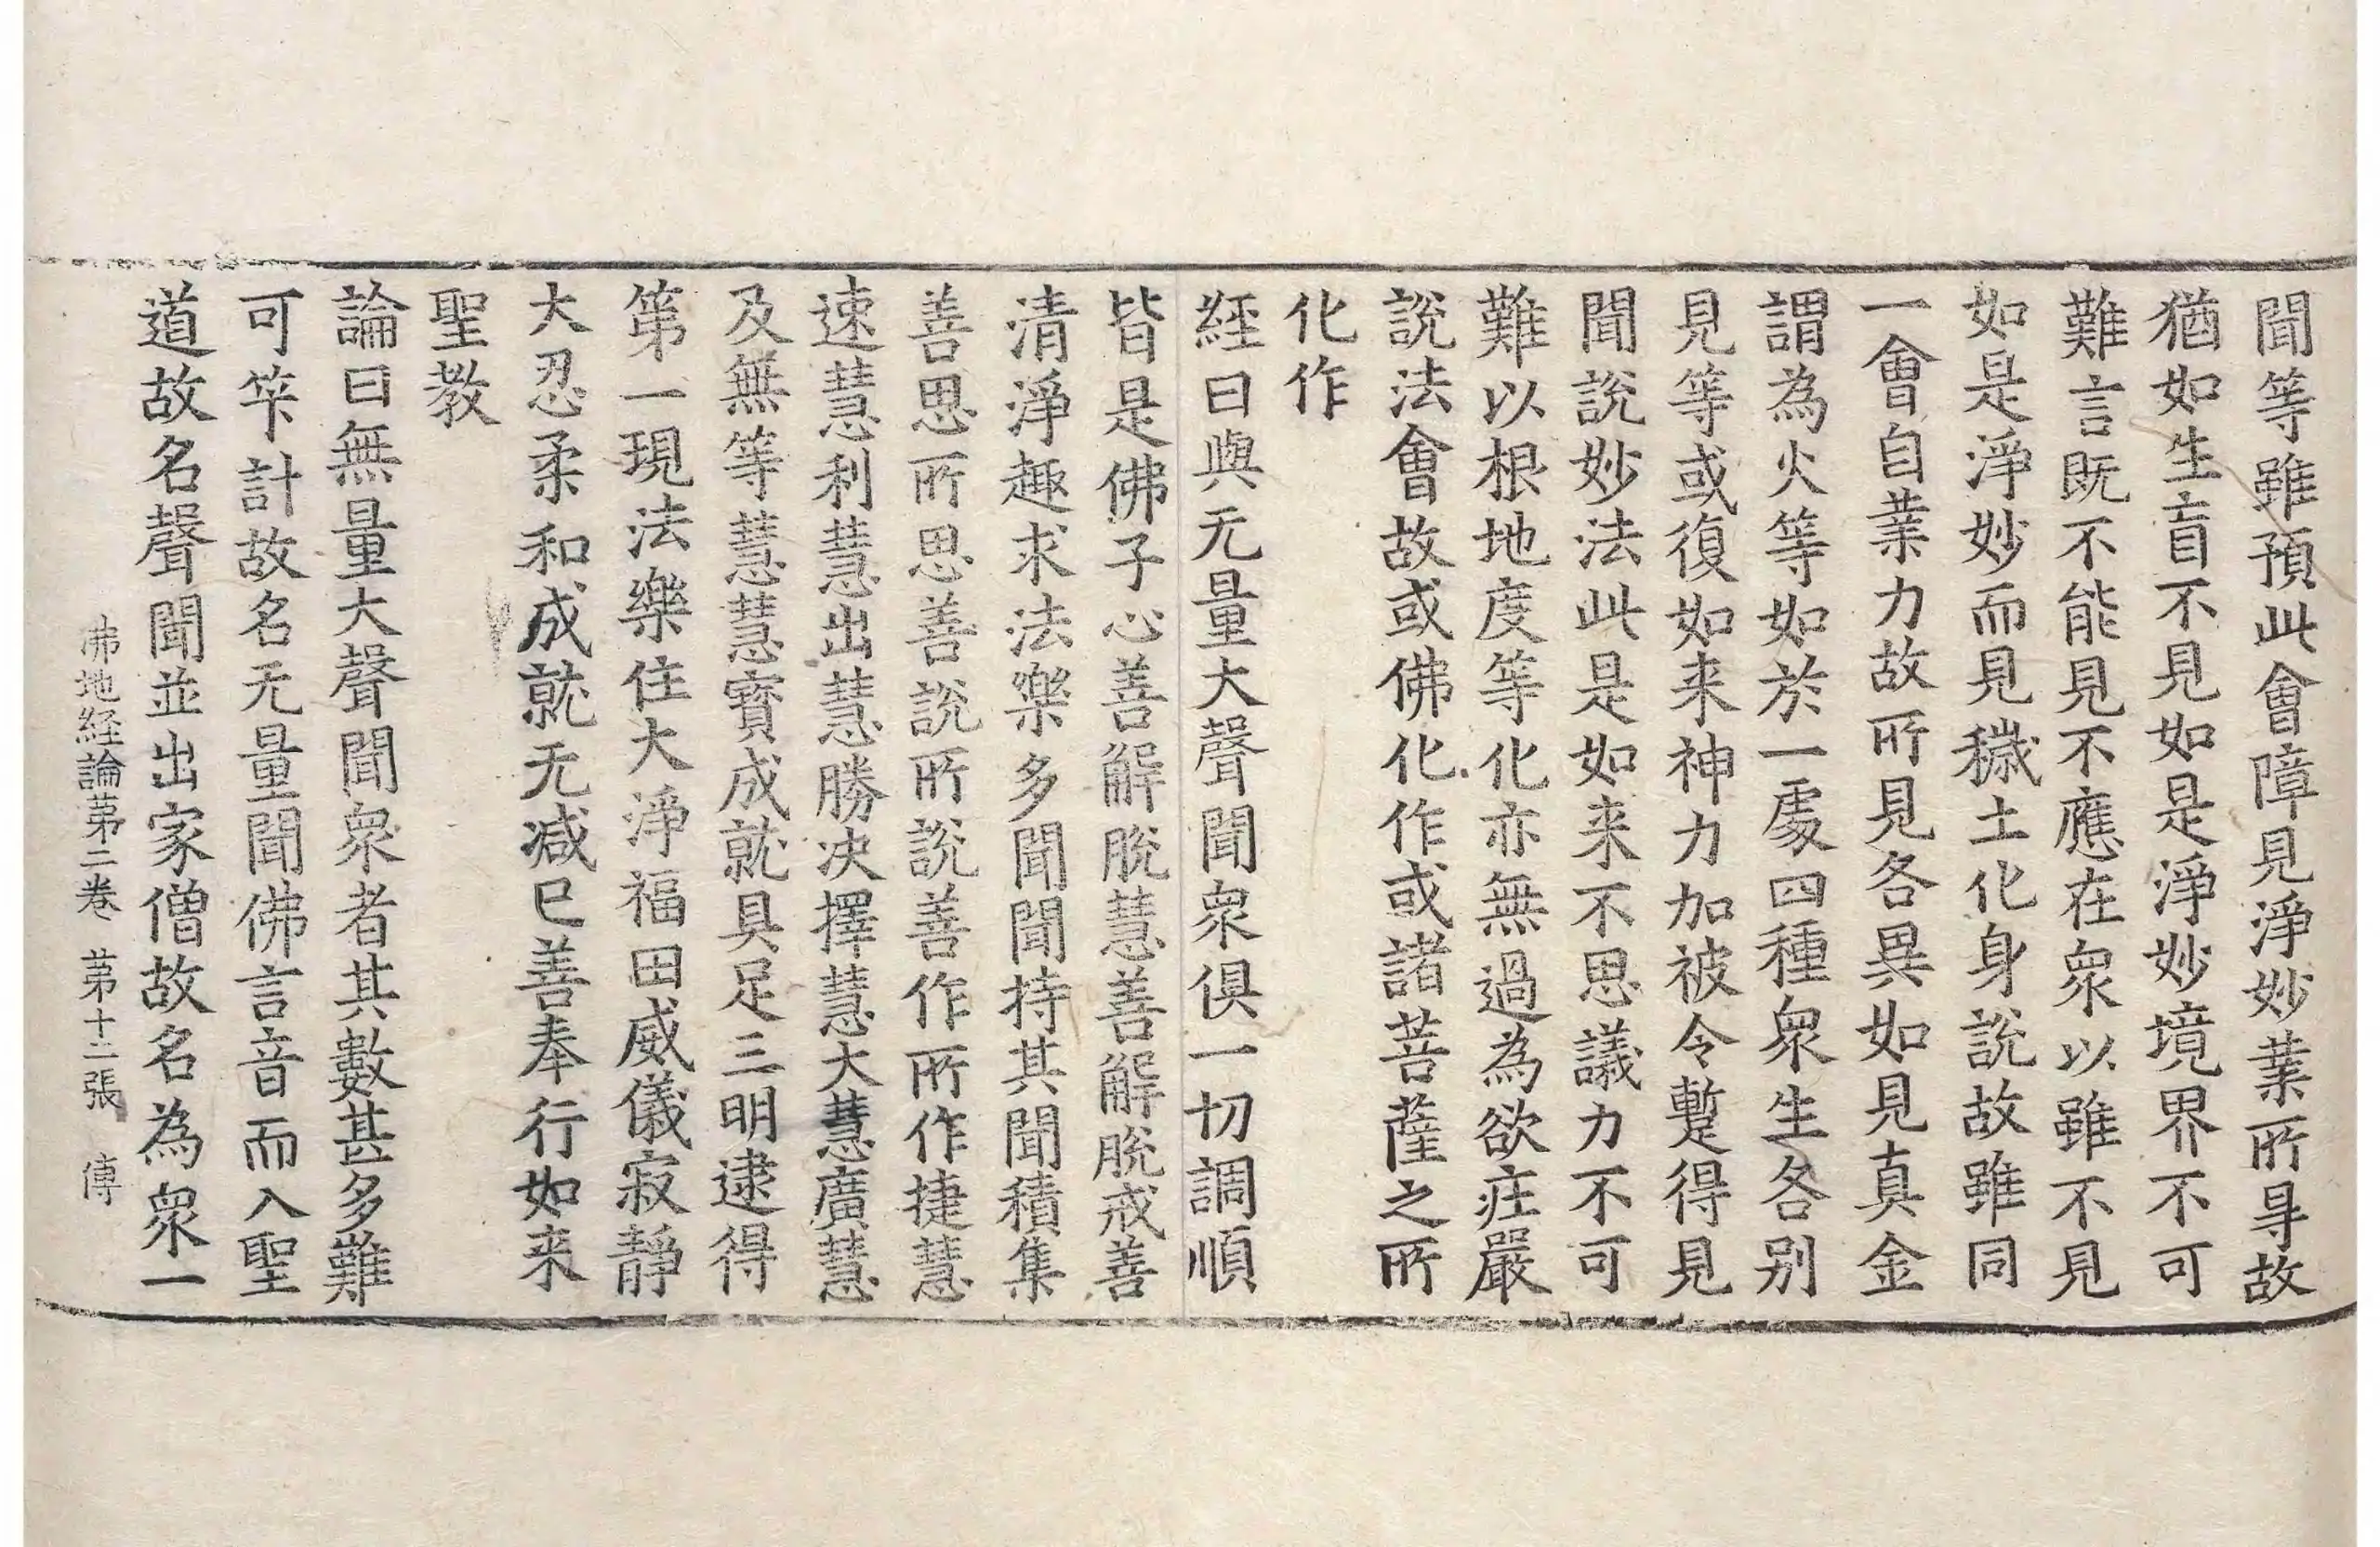 聞等雖預此會障見淨妙業所㝵故
猶如生盲不見如是淨妙境界不可
難言既不能見不應在衆以雖不見
如是淨妙而見穢土化身說故雖同
一會自業力故所見各異如見真金
謂為火等如於一處四種衆生各別
見等或復如来神力加被令蹔得見
聞說妙法此是如来不思議力不可
難以根地度等化亦無過為欲莊嚴
說法會故或佛化作或諸菩薩之所
化作
經曰與无量大聲聞衆俱一切調順
皆是佛子心善解脫慧善解脫戒善
清淨趣求法樂多聞聞持其聞積集
善思所思善說所說善作所作捷慧
速慧利慧出慧勝决擇慧大慧廣慧
及無等慧慧寳成就具足三明逮得
第一現法樂住大淨福田威儀寂靜
大忍柔和成就无减巳善奉行如来
聖教
論曰無量大聲聞衆者其數甚多難
可筭計故名无量聞佛言音而入聖
道故名聲聞並出家僧故名為衆一
佛地経論苐二卷 苐十二張 傳